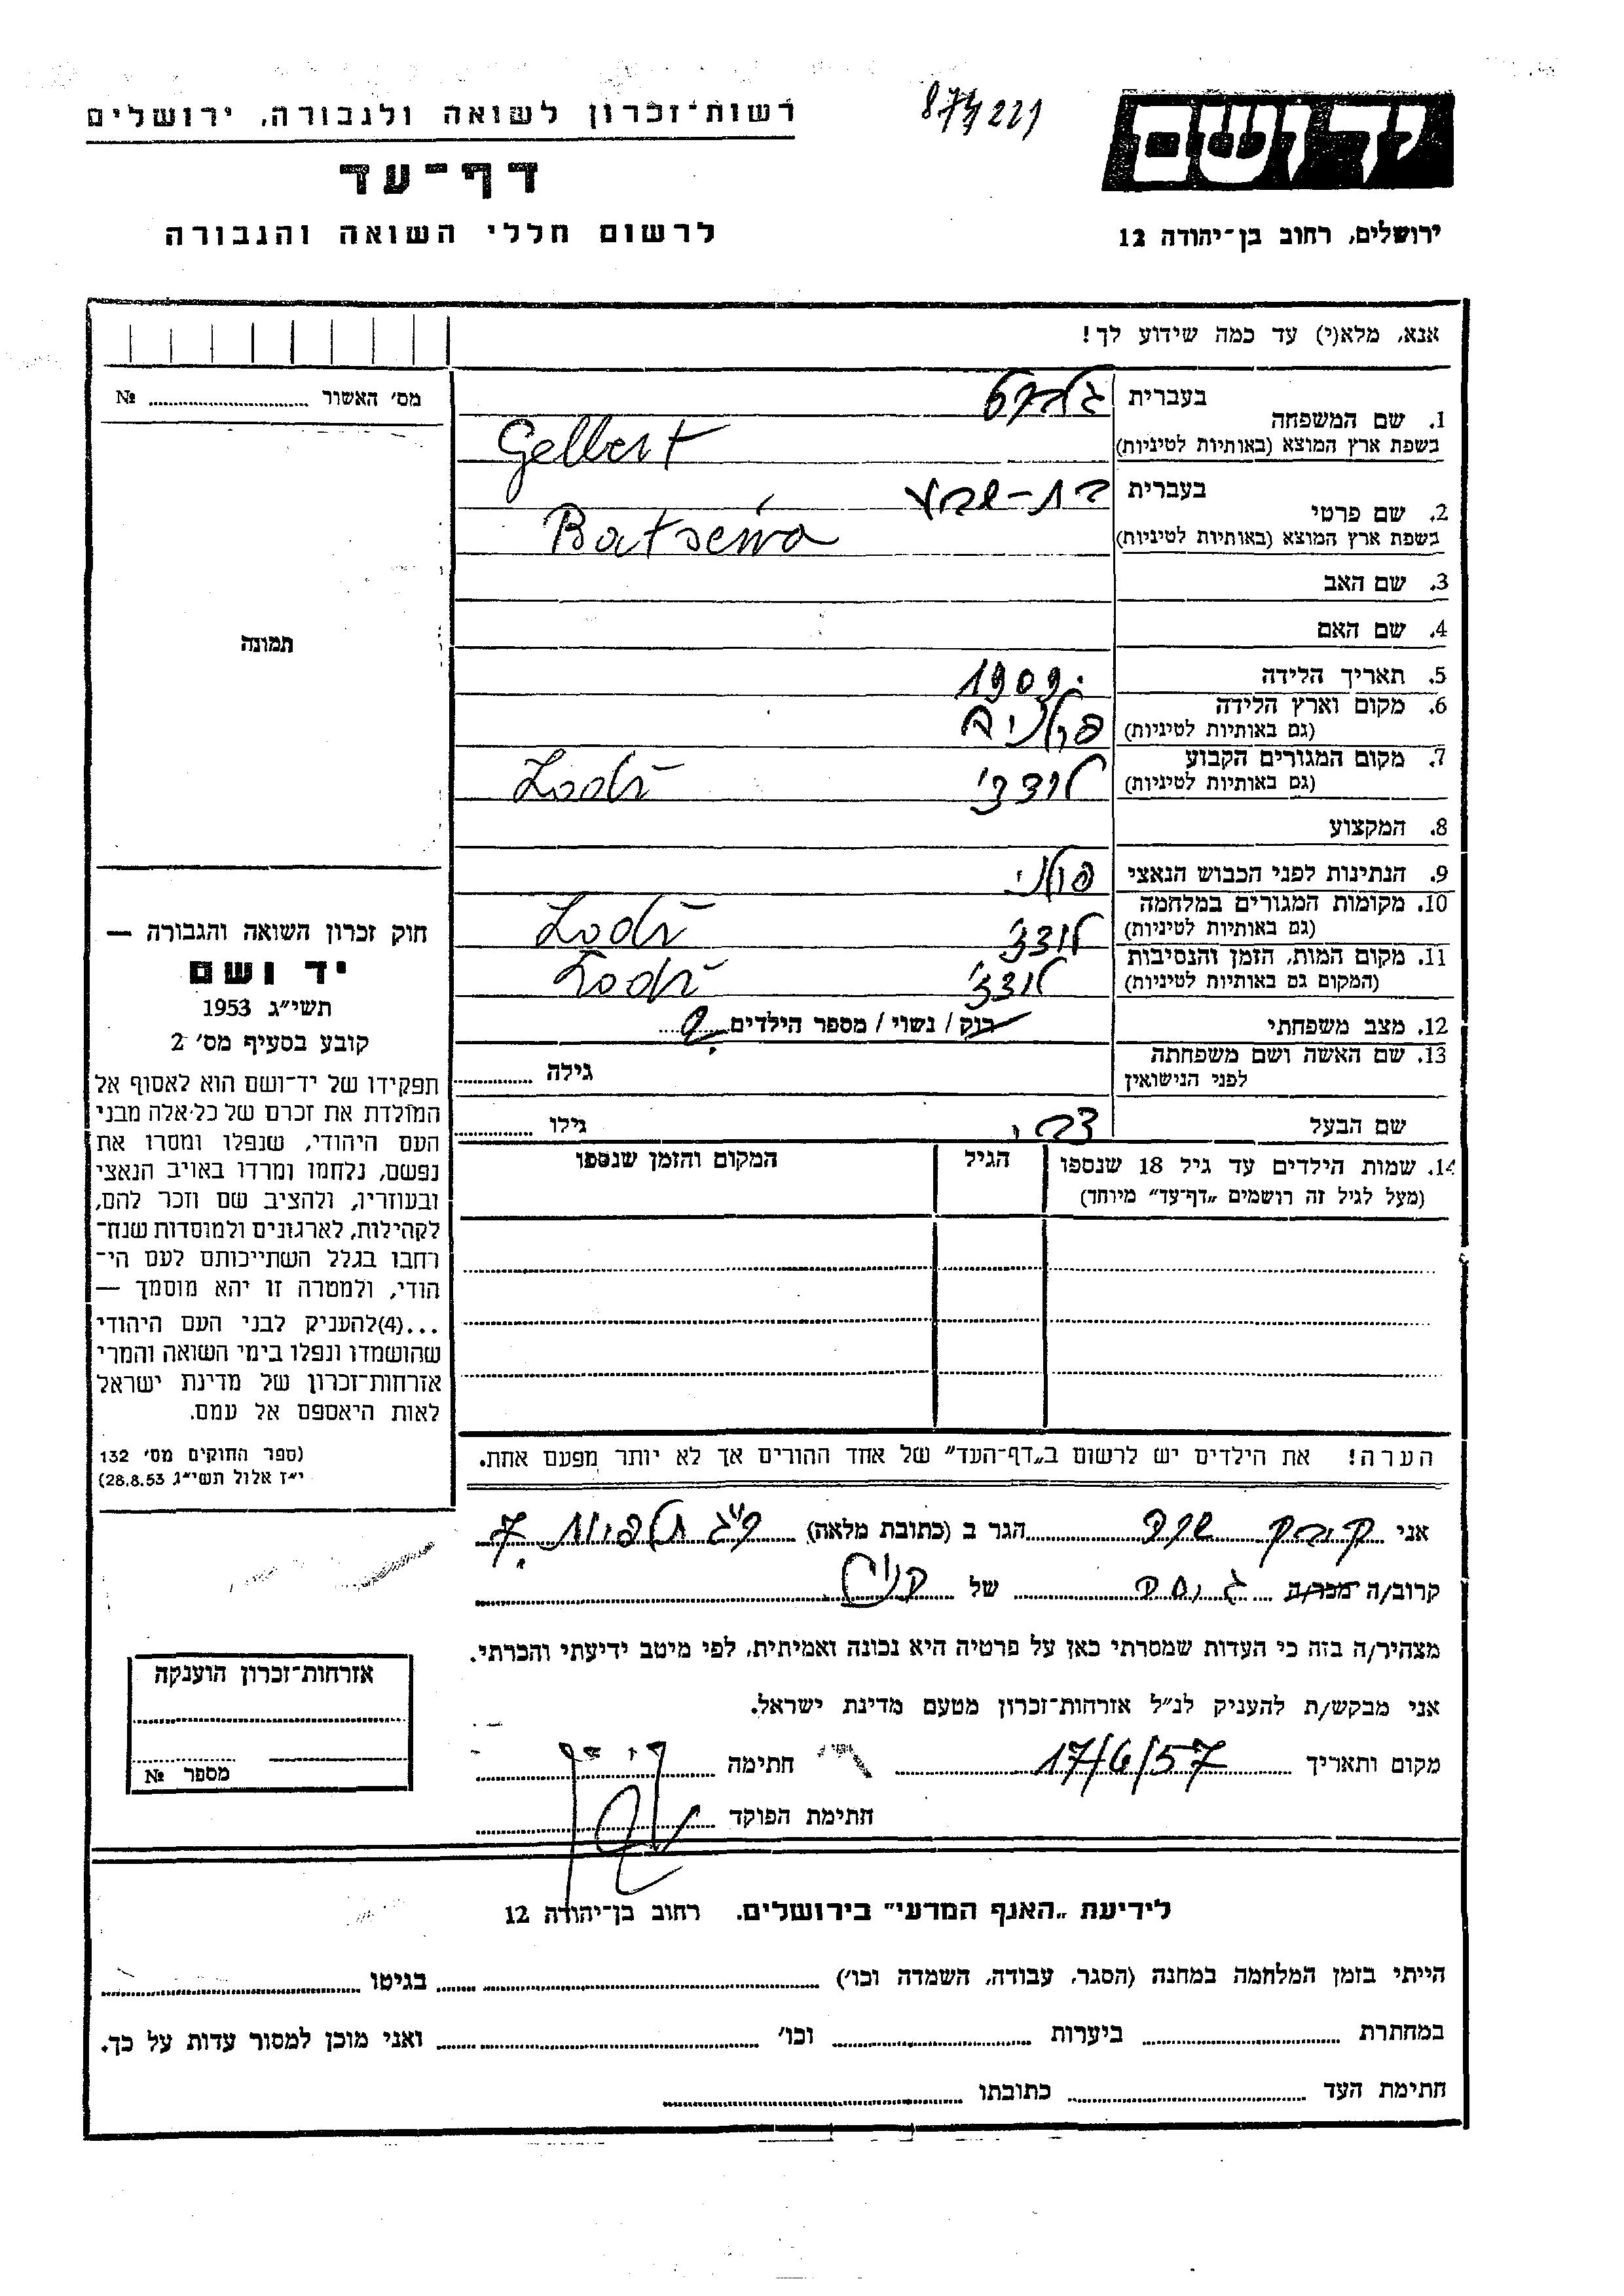 רשות־זכרון לשואה ולגבורה, ירושלים
דף־עד
לרשום חללי השואה והגבורה
יד ושם
ירושלים, רחוב בן־יהודה 12
אנא, מלא(י) עד כמה שידוע לך!
1. שם המשפחה בעברית גלברט
בשפת ארץ המוצא (באותיות לטיניות) Gelbert
2. שם פרטי בעברית בת-שבע
בשפת ארץ המוצא (באותיות לטיניות) Batsewa
3. שם האב
4. שם האם
5. תאריך הלידה 1909
6. מקום וארץ הלידה
(גם באותיות לטיניות) פולניה
7. מקום המגורים הקבוע
(גם באותיות לטיניות) לודז' Lodź
8. המקצוע
9. הנתינות לפני הכבוש הנאצי פולני
10. מקומות המגורים במלחמה
(גם באותיות לטיניות) לודז' Lodź
11. מקום המות, הזמן והנסיבות
(המקום גם באותיות לטיניות) לודז' Lodź
12. מצב משפחתי רוק / נשוי / מספר הילדים
13. שם האשה ושם משפחתה
לפני הנישואין גילה
שם הבעל צבי גילו
14. שמות הילדים עד גיל 18 שנספו הגיל המקום והזמן שנספו
(מעל לגיל זה רושמים „דף־עד” מיוחד)
הערה! את הילדים יש לרשום ב„דף־העד” של אחד ההורים אך לא יותר מפעם אחת.
מס׳ האשור №
תמונה
חוק זכרון השואה והגבורה —
יד ושם
תשי״ג 1953
קובע בסעיף מס׳ 2
תפקידו של יד־ושם הוא לאסוף אל
המולדת את זכרם של כל־אלה מבני
העם היהודי, שנפלו ומסרו את
נפשם, נלחמו ומרדו באויב הנאצי
ובעוזריו, ולהציב שם וזכר להם,
לקהילות, לארגונים ולמוסדות שנח־
רחבו בגלל השתייכותם לעם הי־
הודי, ולמטרה זו יהא מוסמך —
...(4)להעניק לבני העם היהודי
שהושמדו ונפלו בימי השואה והמרי
אזרחות־זכרון של מדינת ישראל
לאות היאספם אל עמם.
(ספר החוקים מס׳ 132
י״ז אלול תשי״ג 28.8.53)
אני הגר ב (כתובת מלאה)
קרוב/ה מכר/ה של
מצהיר/ה בזה כי העדות שמסרתי כאן על פרטיה היא נכונה ואמיתית, לפי מיטב ידיעתי והכרתי.
אני מבקש/ת להעניק לנ״ל אזרחות־זכרון מטעם מדינת ישראל.
מקום ותאריך 17/6/57 חתימה
חתימת הפוקד
אזרחות־זכרון הוענקה
מספר №
לידיעת „האגף המדעי” בירושלים. רחוב בן־יהודה 12
הייתי בזמן המלחמה במחנה (הסגר, עבודה, השמדה וכו׳) בגיטו
במחתרת ביערות וכו׳ ואני מוכן למסור עדות על כך.
חתימת העד כתובתו